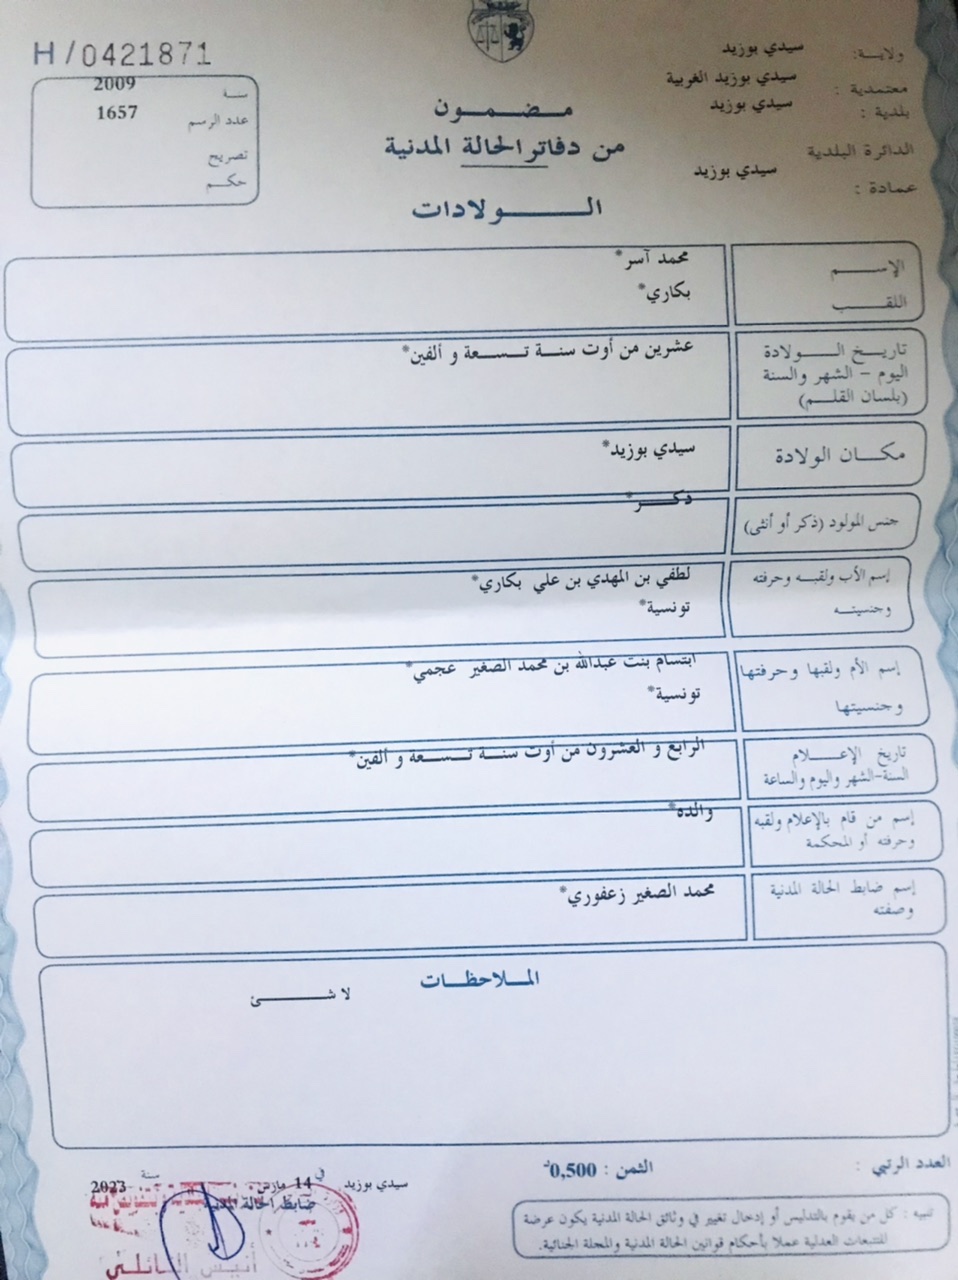 H/0421871
ولاية: سيدي بوزيد
معتمدية : سيدي بوزيد الغربية
بلدية : سيدي بوزيد
الدائرة البلدية
عمادة : سيدي بوزيد
سنة 2009
عدد الرسم 1657
تصريح
حكم
مضمون
من دفاتر الحالة المدنية
الولادات
الإسم محمد آسر*
اللقب بكاري*
تاريخ الولادة عشرين من أوت سنة تسعة و ألفين*
اليوم - الشهر والسنة
(بلسان القلم)
مكان الولادة سيدي بوزيد*
جنس المولود (ذكر أو أنثى) ذكر*
إسم الأب ولقبه وحرفته لطفي بن المهدي بن علي بكاري*
وجنسيته تونسية*
إسم الأم ولقبها وحرفتها ابتسام بنت عبدالله بن محمد الصغير عجمي*
وجنسيتها تونسية*
تاريخ الإعلام الرابع و العشرون من أوت سنة تسعة و ألفين*
السنة-الشهر واليوم والساعة
إسم من قام بالإعلام ولقبه والده*
وحرفته أو المحكمة
إسم ضابط الحالة المدنية محمد الصغير زعفوري*
وصفته
الملاحظات
لا شئ
العدد الرتبي : الثمن : 0,500د
سيدي بوزيد في 14 مارس سنة 2023
ضابط الحالة المدنية
تنبيه : كل من يقوم بالتدليس أو إدخال تغيير في وثائق الحالة المدنية يكون عرضة
للتتبعات العدلية عملا بأحكام قوانين الحالة المدنية والمجلة الجنائية.